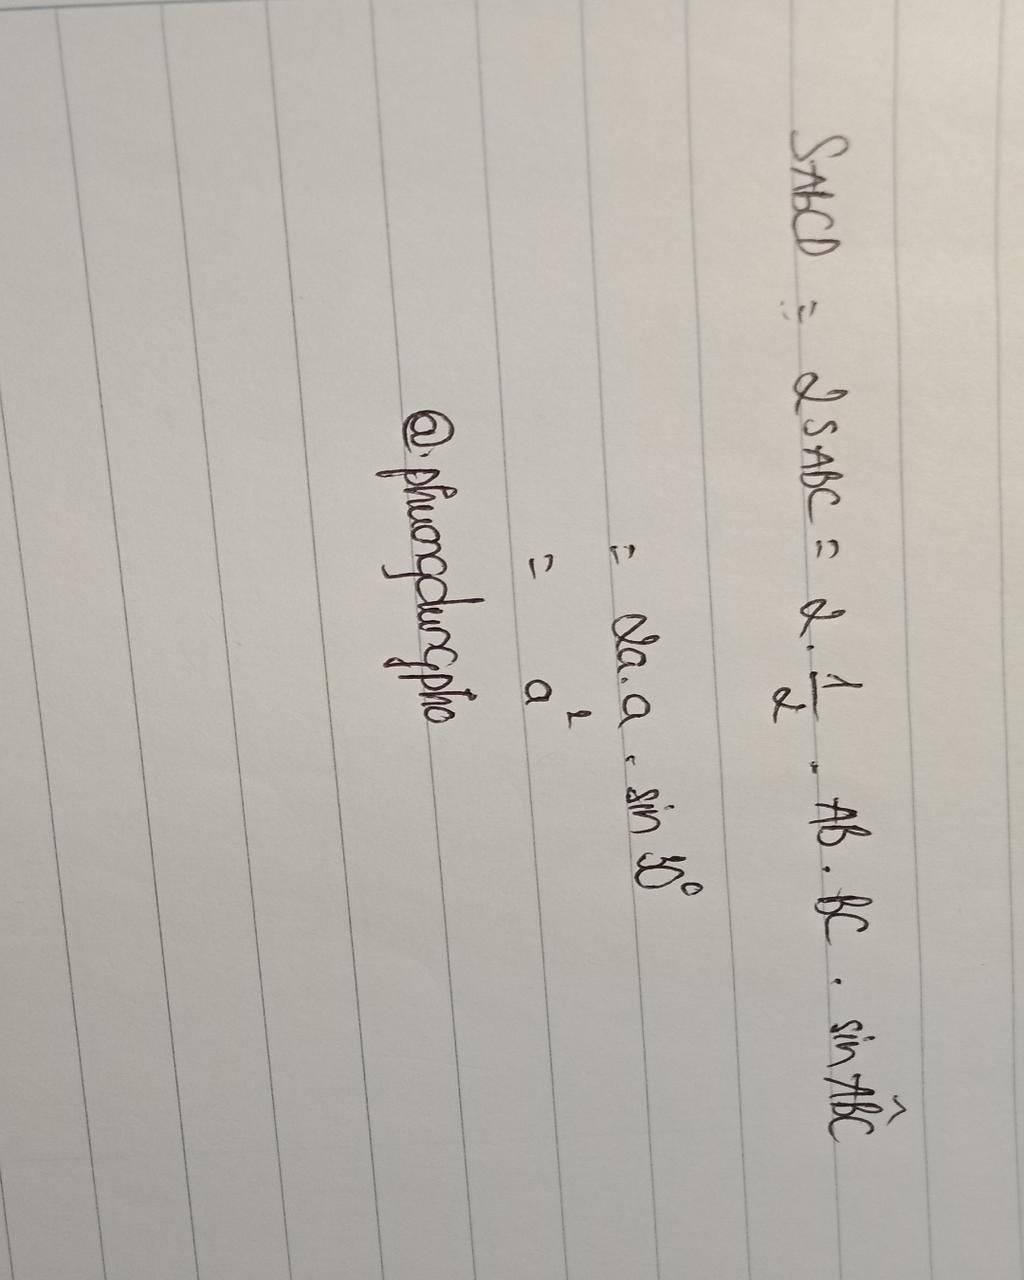 SABCD = 2SABC = 2 . 1/2 . AB . BC . sin ABC^
= 2a . a . sin 30°
= a²
@.phuongdungpho